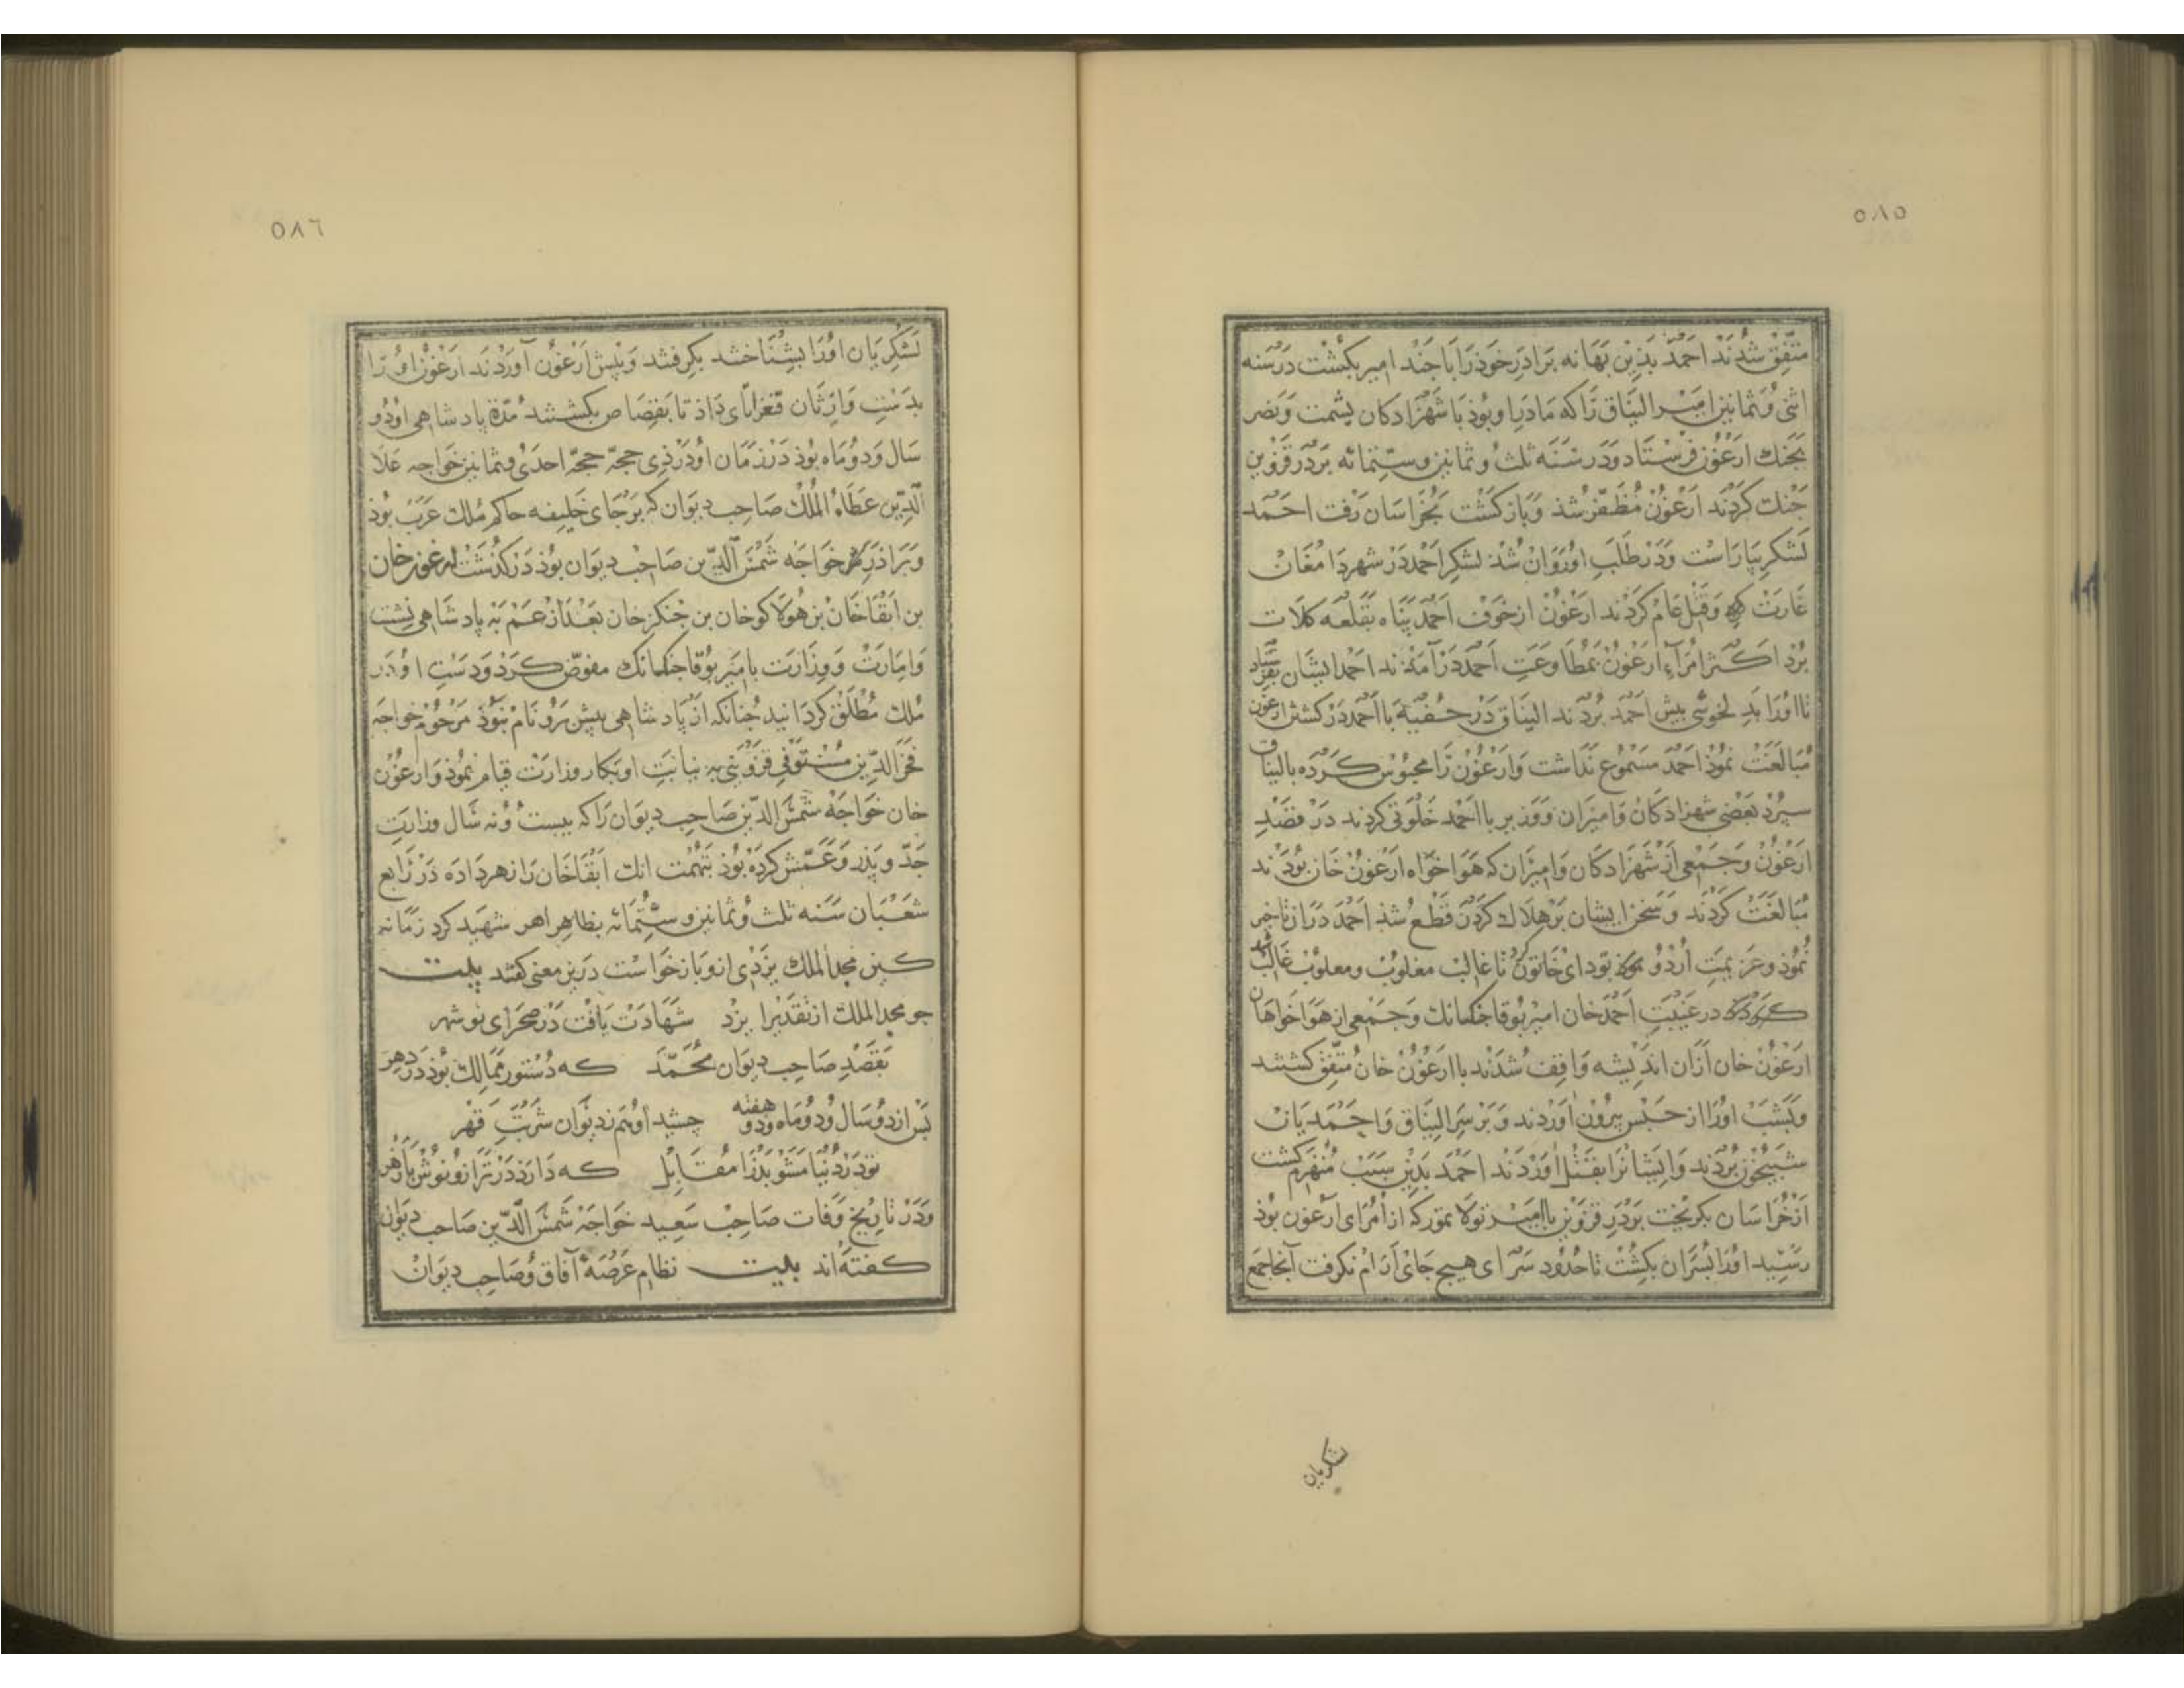 ٥٨٥
متفق شدند احمد بذین بهانه برادر خوذ را با چند امیر بکشت در سنه
اثنی و ثمانین امیر الیناق را که مادر با و بوذ با شهزادکان یشمت و نصر
بجنك ارغون فرستاد و در سنه ثلث و ثمانین و ستمائه بر در قزوین
جنك کردند ارغون مظفر شذ و باز کشت بخراسان رفت احمد
لشکر بیاراست و در طلب او روان شذ لشکر احمد در شهر دامغان
غارت و قتل عام کردند ارغون از خوف احمد پناه بقلعه کلات
برد اکثر امراء ارغون بمطاوعت احمد در آمذند احمد ایشان بفرستاد
تا اورا بد لخوشی پیش احمد بردند الیناق در خفیة با احمد در کشتن ارغون
مبالغت نموذ احمد مسموع نداشت و ارغون را محبوس کرده بالیناق
سپرد بعضی شهزادکان و امیران و وزیر با احمد خلوتی کردند در قصد
ارغون و جمعی از شهزادکان و امیران که هواخواه ارغون خان بوذند
مبالغت کردند و سخن ایشان بر هلاك کردن قطع شذ احمد دران تاخیر
نموذ و عزیمت اردو کرد تودای خاتون تا غالب مغلوب و مغلوب غالب شد
در غیبت احمد خان امیر بوقا جنکسانك و جمعی از هواخواهان
ارغون خان ازان اندیشه واقف شدند با ارغون خان متفق کشتند
و بشب اورا از حبس بیرون آوردند و بر سر الیناق و احمدیان
شبیخون بردند و ایشانرا بقتل آوردند احمد بدین سبب منهزم کشت
از خراسان بکریخت بر در قزوین با امیر تولا تمور که از امرای ارغون بوذ
رسید اورا بسران بکشت تا حدود سرای هیچ جای آرام نکرفت آنجا جمع
لشکریان
٥٨٦
لشکریان اورا بشناختند بکرفتند و پیش ارغون آوردند ارغون اورا
بدست وارثان قنغراتای داذ تا بقصاص بکشتند مدة پادشاهی او دو
سال و دو ماه بوذ در زمان او در ذی حجة حجة احدی و ثمانین خواجه علا
الدین عطاء الملك صاحب دیوان که بر جای خلیفه حاکم ملك عرب بوذ
و براذر خواجه شمس الدین صاحب دیوان بوذ در کذشت ارغون خان
بن ابقا خان بن هولاکو خان بن جنکز خان بعد از عم به پادشاهی نشست
و امارت و وزارت بامیر بوقا جنکسانك مفوض کرد و دست او در
ملك مطلق کردانید چنانکه از پادشاهی پیش برو نام نبوذ مرحوم خواجه
فخر الدین مستوفی قزوینی به نیابت او بکار وزارت قیام نموذ و ارغون
خان خواجه شمس الدین صاحب دیوان را که بیست و نه سال وزارت
جد و پذر و عمش کرده بوذ بتهمت انك ابقا خان را زهر داده در رابع
شعبان سنه ثلث و ثمانین و ستمائه بظاهر اهر شهید کرد زمانه
کین مجد الملك یزدی ازو باز خواست درین معنی کفتند بیت
چو مجد الملك از تقدیر ایزد شهادت یافت در صحرای نوشهر
بقصد صاحب دیوان محمد که دستور ممالك بوذ در دهر
پس از دو سال و دو ماه و دو هفته چشید او هم ز دیوان شربت قهر
تو در دنیا مشو بد را مقابل که دارد در ترازو نوش با زهر
و در تاریخ وفات صاحب سعید خواجه شمس الدین صاحب دیوان
کفته اند بیت نظام عرصه آفاق و صاحب دیوان